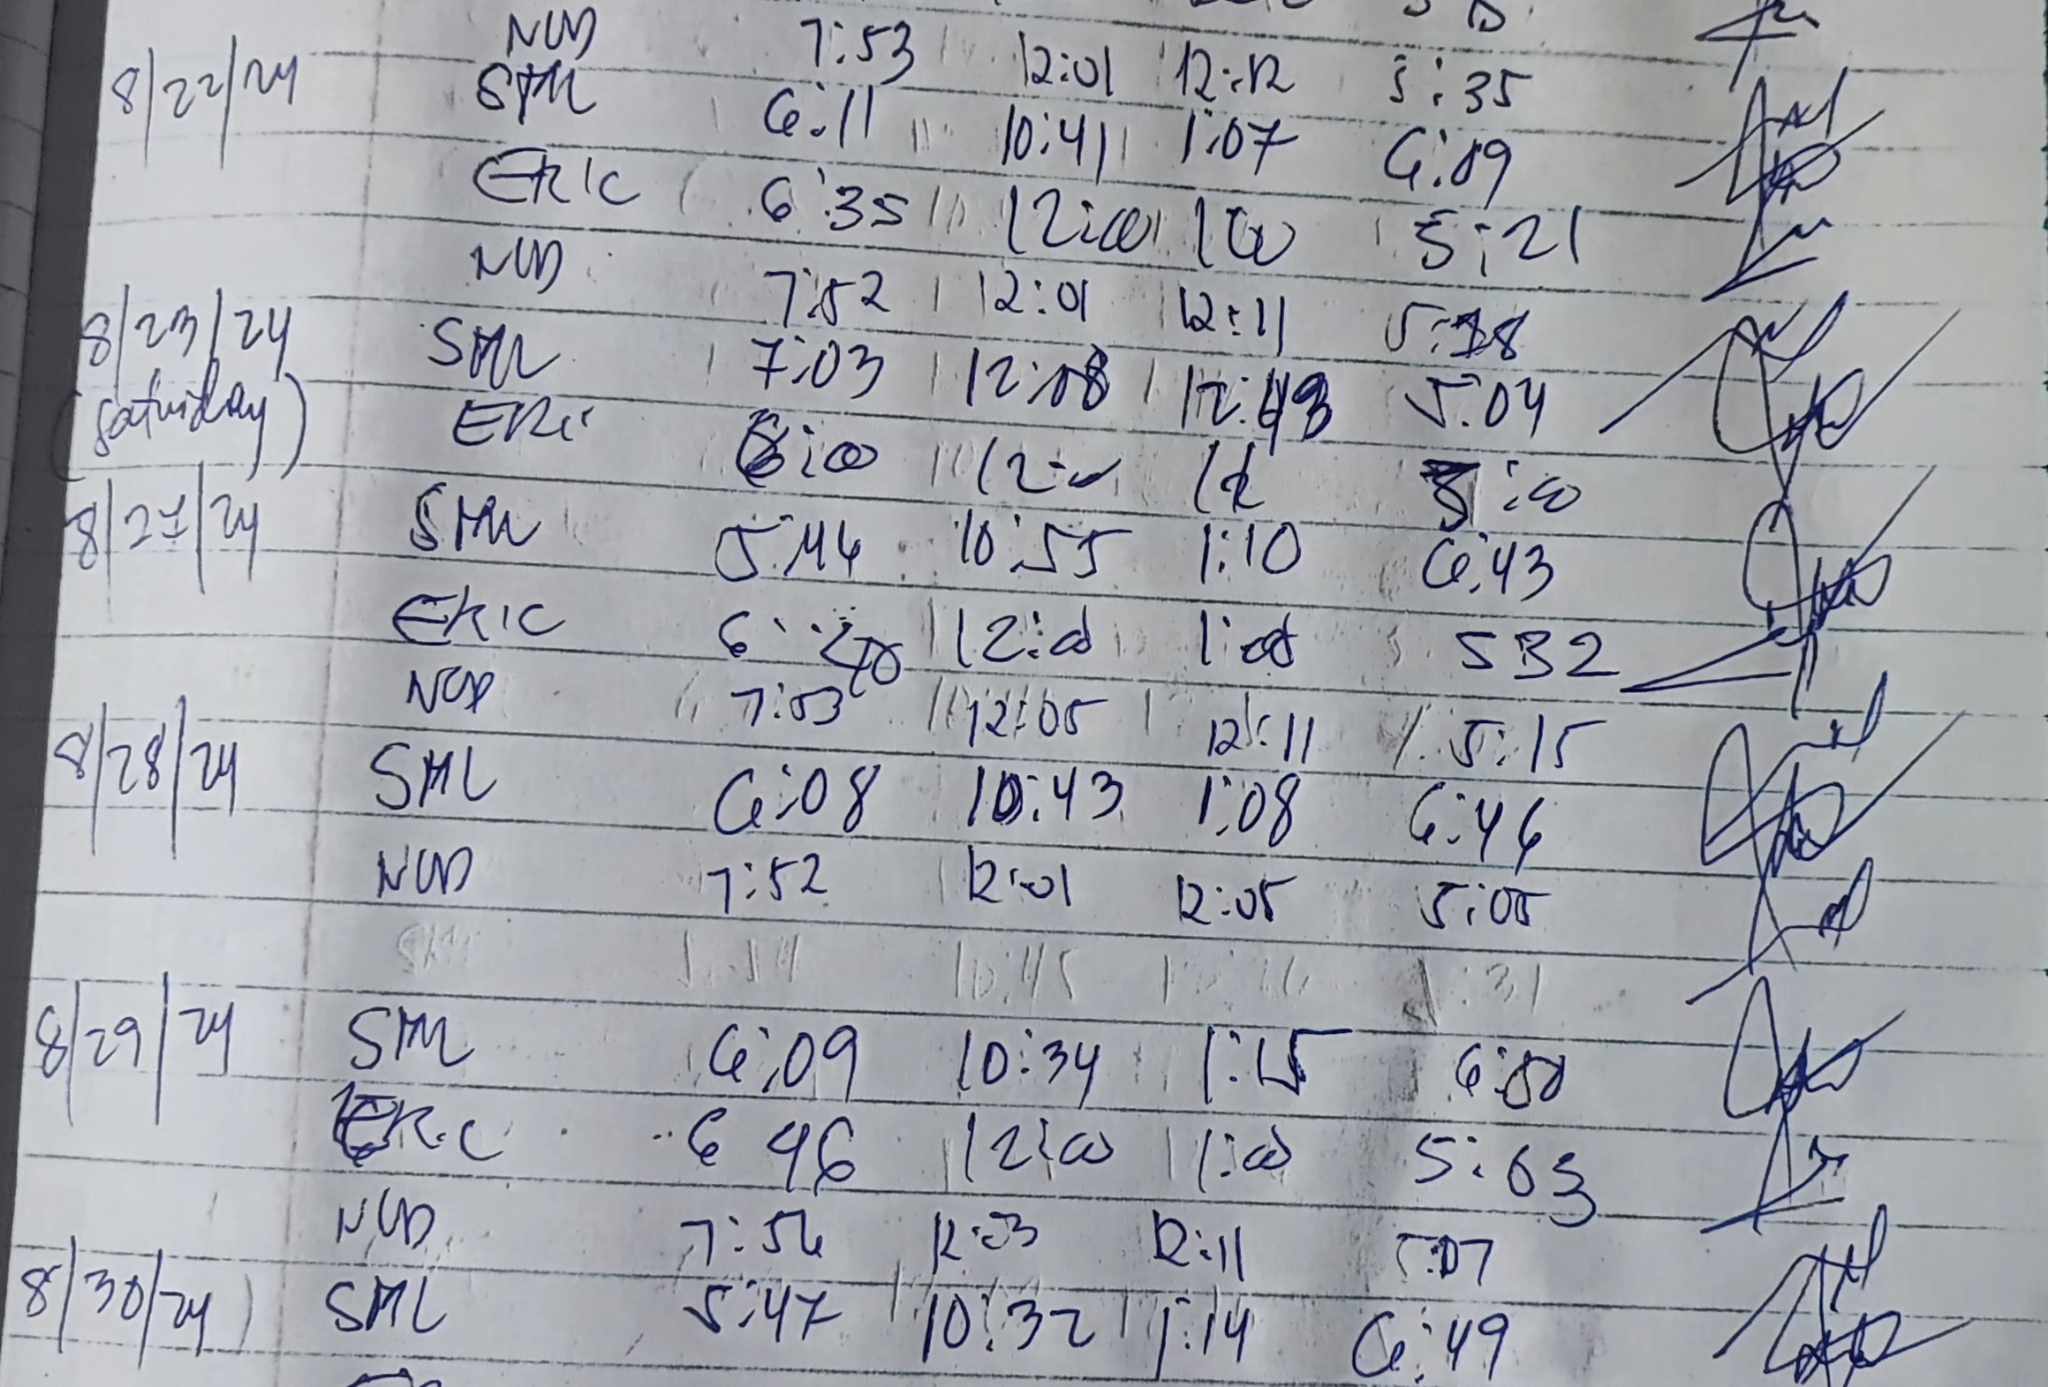 NCD 7:53 12:01 12:12 5:35
8/22/24 SML 6:11 10:41 1:07 6:09
ERIC 6:35 12:00 1:00 5:21
NCD 7:52 12:01 12:11 5:18
8/23/24 SML 7:03 12:08 12:43 5:04
(Saturday) ERIC 8:00 12:00 5:00
8/27/24 SML 5:46 10:55 1:10 6:43
ERIC 6:40 12:00 1:00 532
NCD 7:53 12:05 12:11 5:15
8/28/24 SML 6:08 10:43 1:08 6:46
NCD 7:52 12:01 12:05 5:05
8/29/24 SML 6:09 10:34 1:15 6:50
ERIC 6 46 12:00 1:00 5:03
NCD 7:56 12:03 12:11 5:07
8/30/24 SML 5:47 10:32 1:14 6:49